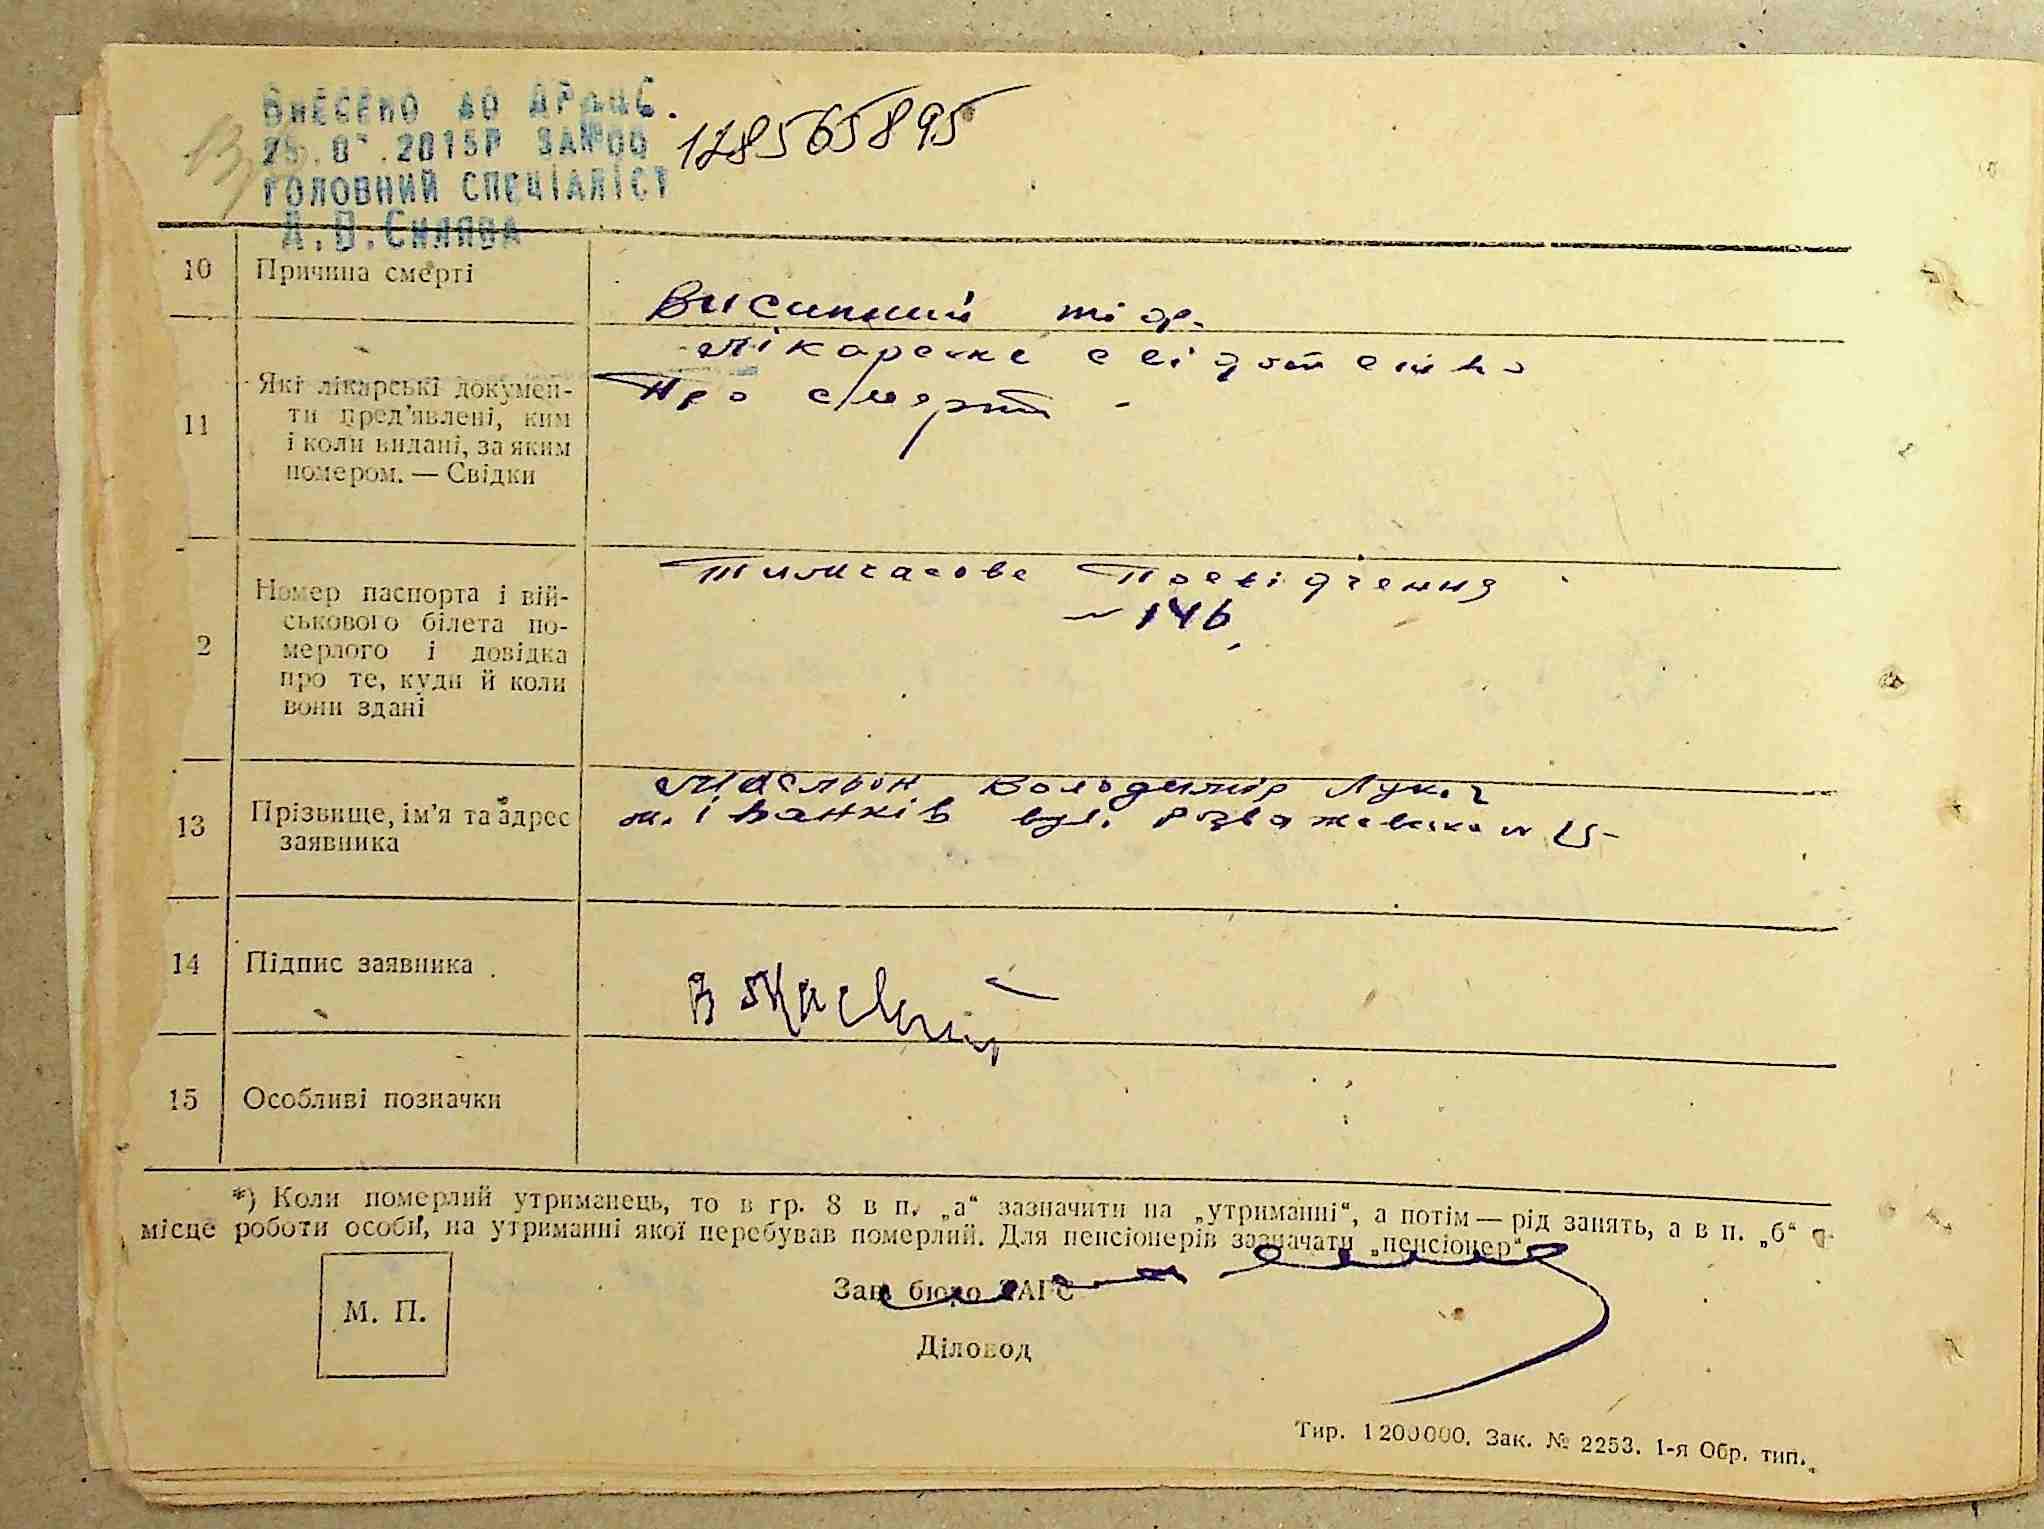 Внесено до ДРАЦС.
2015р зАМ00 128565895
головний спеціаліст
Д.В.Силява
10 Причина смерті
Висипний тіф.
11 Які лікарські докумен-
ти пред'явлені, ким
і коли видані, за яким
номером. — Свідки
Лікарське свідотство
Про смерть -
2 Номер паспорта і вій-
ськового білета по-
мерлого і довідка
про те, куди й коли
вони здані
Тимчасове Посвідчення
146
13 Прізвище, ім'я та адрес
заявника
Володимір Лукич
м. Іванків вул.
14 Підпис заявника
15 Особливі позначки
*) Коли померлий утриманець, то в гр. 8 в п. „а“ зазначити на „утриманні“, а потім — рід занять, а в п. „б“
місце роботи особи, на утриманні якої перебував померлий. Для пенсіонерів зазначати „пенсіонер“
М. П.
Зав. бюро ЗАГС
Діловод
Тир. 1200000. Зак. № 2253. 1-я Обр. тип.